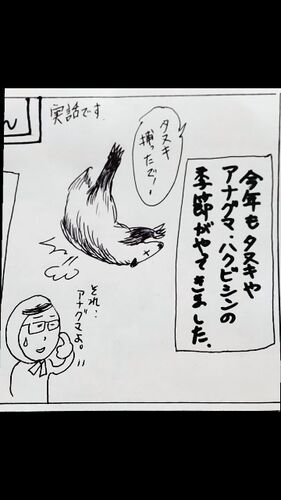 今年もタヌキや
アナグマ・ハクビシンの
季節がやってきました。
タヌキ
捕ったでー!
実話です
それ…
アナグマよ。
ん